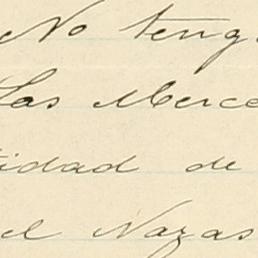 No teng
Las Merce
tidad de
el Nazas